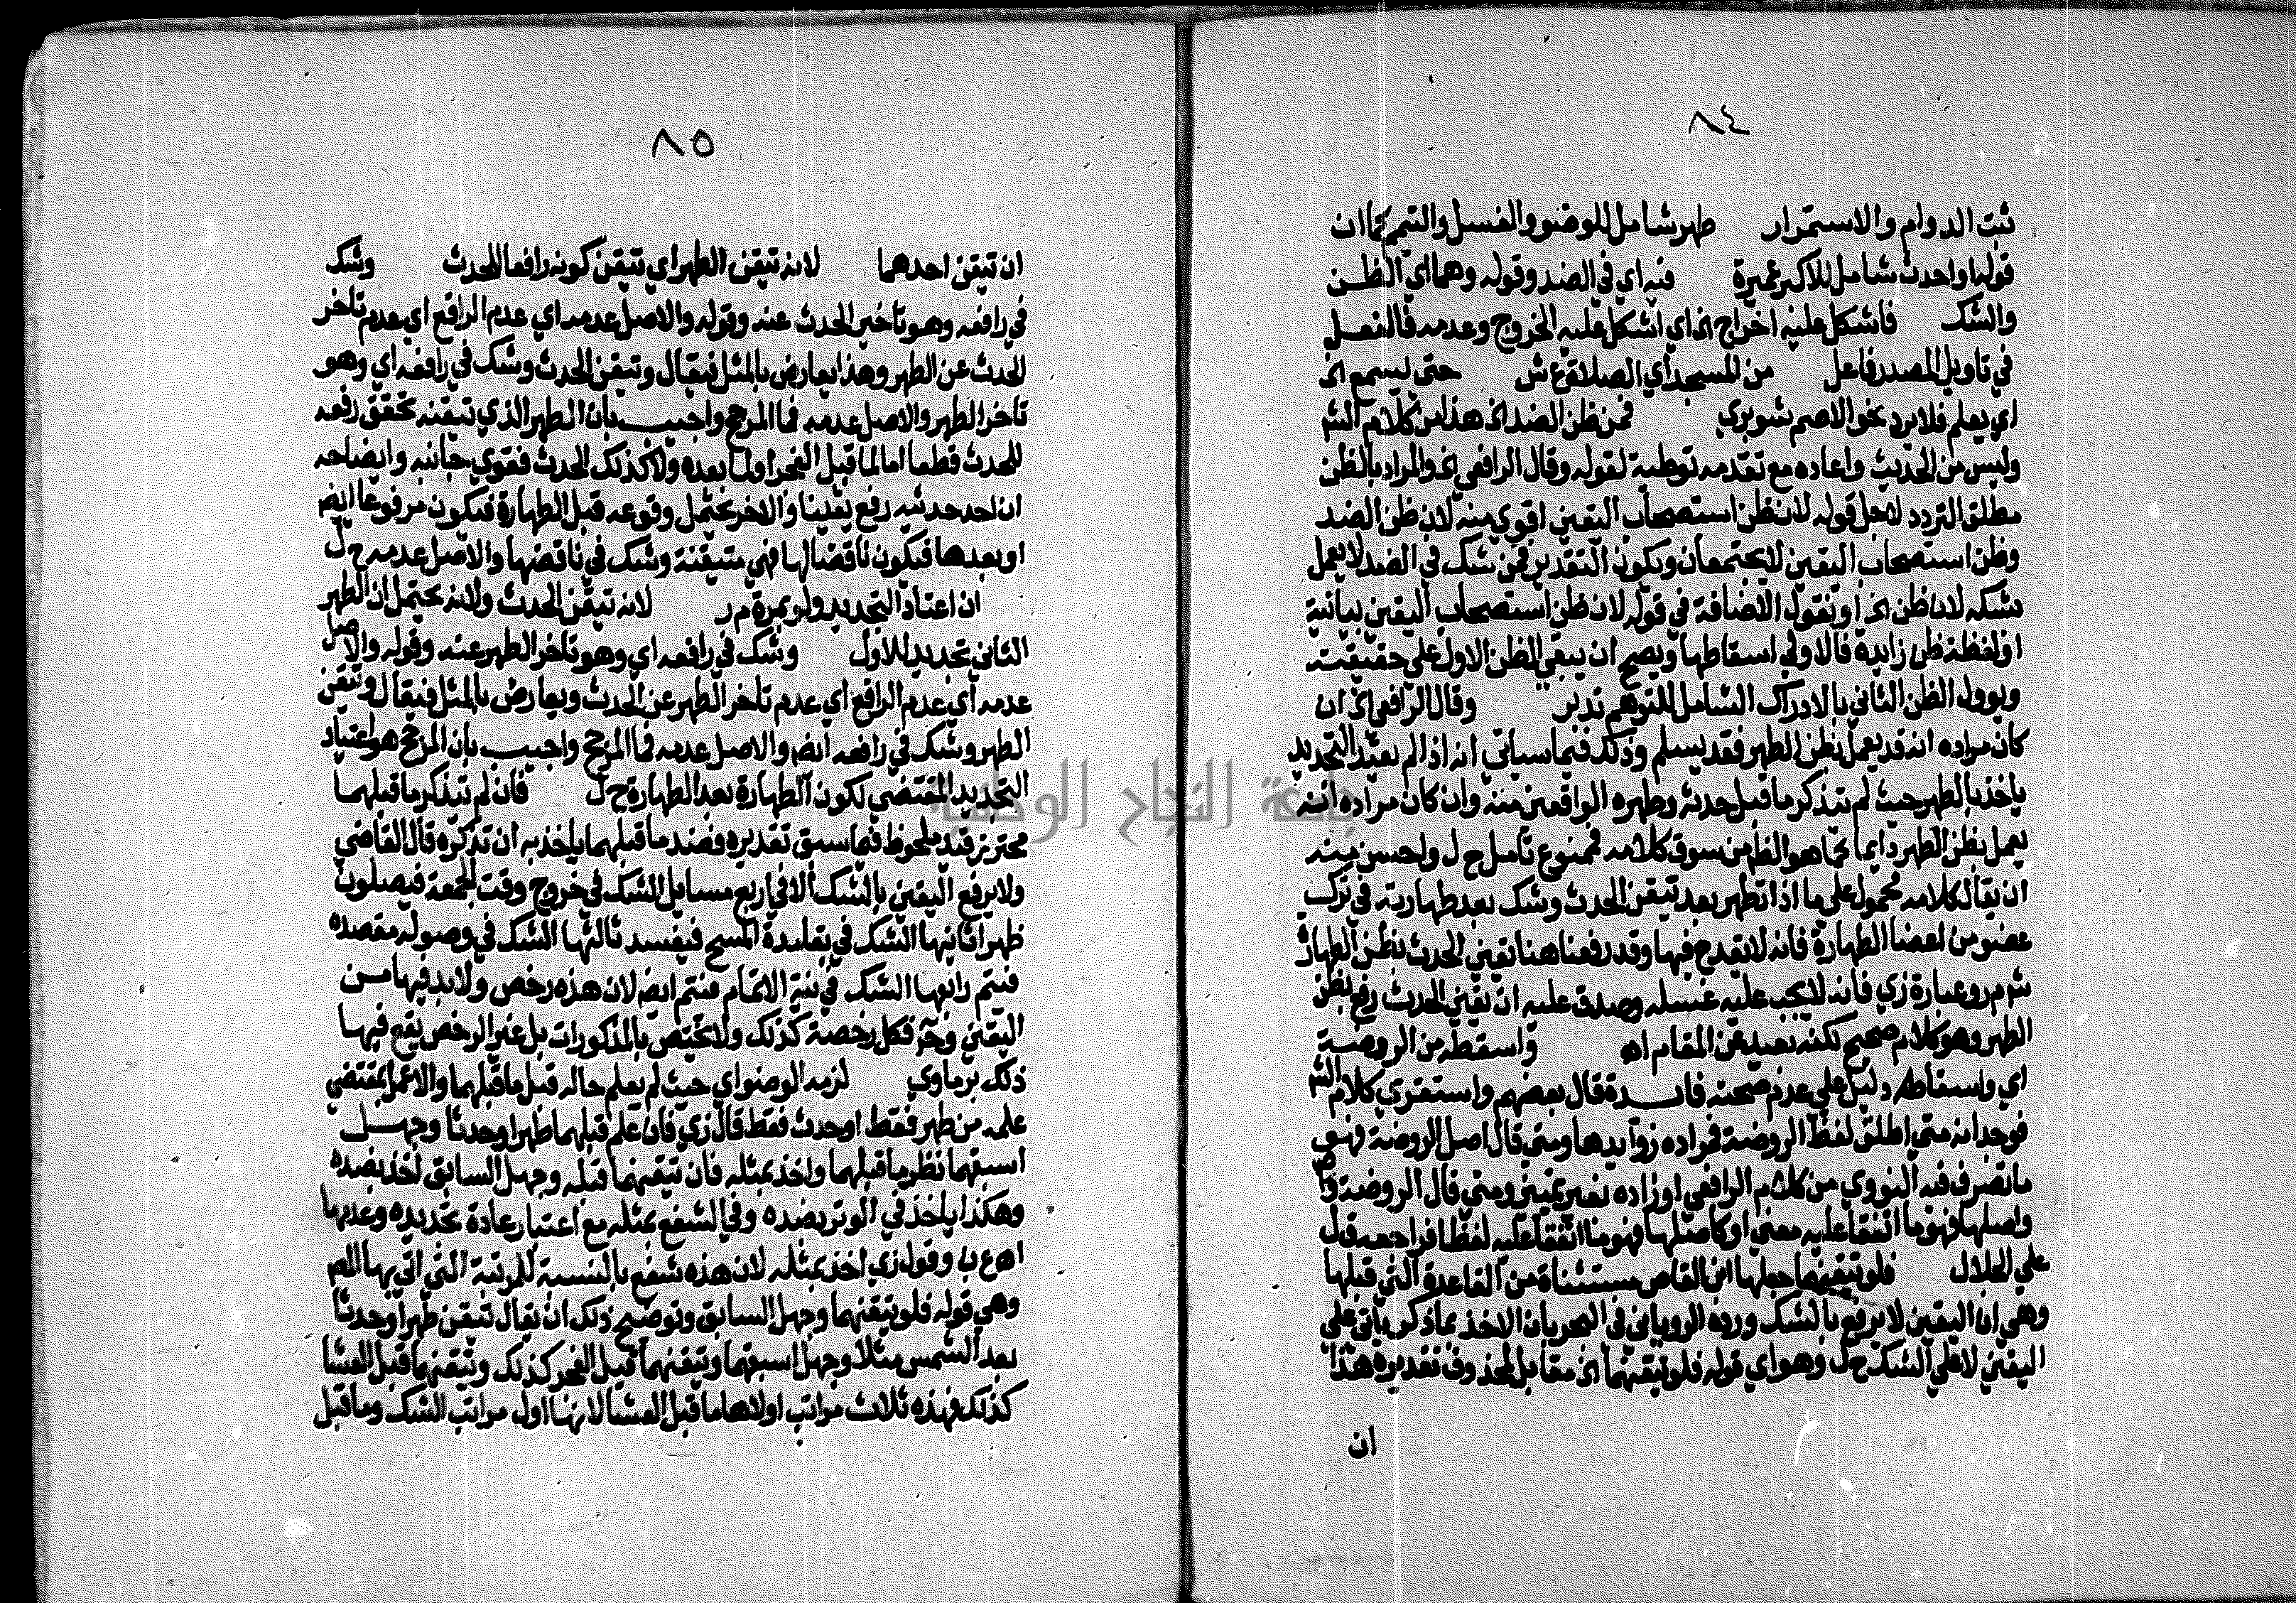 ٨٤
ثبت الدوام والاستمرار طهر شامل للوضوء والغسل والتيمم كما ان
قوله او احدث شامل للاكبر عميرة فيه اي في الضد وقوله وهما اي الظن
والشك فاشكل عليه اخراج الخ اي اشكل عليه الخروج وعدمه فالفعل
في تاويل المصدر فاعل من المسجد اي الصلاة ع ش حتى يسمع الخ
اي يعلم فلا يرد نحو الاصم شوبري فمن ظن الضد الخ هذا من كلام الش
وليس من الحديث واعاده مع تقدمه توطية لقوله وقال الرافعي الخ والمراد بالظن
مطلق التردد لاجل قوله لان ظن استصحاب اليقين اقوي منه لان ظن الضد
وظن استصحاب اليقين لا يجتمعان ويكون التقدير فمن شك في الضد لا يعمل
بشكه لان ظن الخ او نقول الاضافة في قوله لان ظن استصحاب اليقين بيانية
او لفظة ظن زايدة فالاولي اسقاطها ويصح ان يبقي الظن الاول علي حقيقته
ويوول الظن الثاني بالادراك الشامل للتوهم تدبر وقال الرافعي الخ ان
كان مراده انه قد يعمل بظن الطهر فقد يسلم وذلك فيما سياتي انه اذا لم يعتد التجديد
ياخذ بالطهر حيث لم يتذكر ما قبل حدثه وطهره الواقعين منه وان كان مراده انه
يعمل بظن الطهر دايما كما هو الظ من سوق كلامه فممنوع تامل ح ل واحسن منه
ان يقال كلامه محمول علي ما اذا تطهر بعد تيقن الحدث وشك بعد طهارته في ترك
عضو من اعضا الطهارة فانه لا يقدح فيها وقد رفعنا هنا يقين الحدث بظن الطهارة
ش م ر وعبارة زي فانه لا يجب عليه غسله وصدق عليه ان يقين الحدث رفع بظن
الطهر وهو كلام صحيح لكنه بعيد عن المقام اه واسقطه من الروضة
اي واسقاطه دليل علي عدم صحته فايدة قال بعضهم واستقري كلام الش
فوجد انه متي اطلق لفظ الروضة فمراده زوايدها ومتي قال اصل الروضة فهو
ما تصرف فيه النووي من كلام الرافعي او زاده بغير تمييز ومتي قال الروضة
واصلها فهو ما اتفقا عليه معني او كاصلها فهو ما اتفقا عليه لفظا فراجعه ق ل
علي الجلال فلو تيقنهما جعلها ابن القاص مستثناة من القاعدة التي قبلها
وهي ان اليقين لا يرفع بالشك ورده الروياني في البحر بان الاخذ بما ذكر ياتي علي
اليقين لا علي الشك ح ل وهو اي قوله فلو تيقنهما الخ مقابل لمحذوف تقديره هذا
ان
٨٥
ان تيقن احدهما لانه تيقن الطهر اي تيقن كونه رافعا للحدث وشك
في رافعه وهو تاخير الحدث عنه وقوله والاصل عدمه اي عدم الرافع اي عدم تاخر
الحدث عن الطهر وهذا يعارض بالمثل فيقال وتيقن الحدث وشك في رافعه اي وهو
تاخر الطهر والاصل عدمه فما المرجح واجيب بان الطهر الذي تيقنه تحقق رفعه
للحدث قطعا اما لما قبل الفجر او لما بعده ولا كذلك الحدث فقوي جانبه وايضاحه
ان احد حدثيه رفع يقينا والاخر يحتمل وقوعه قبل الطهارة فيكون مرفوعا ايضا
او بعدها فيكون ناقضا لها فهي متيقنة وشك في ناقضها والاصل عدمه ح ل
ان اعتاد التجديد ولو بمرة م ر لانه تيقن الحدث ولانه يحتمل ان الطهر
الثاني تجديد للاول وشك في رافعه اي وهو تاخر الطهر عنه وقوله والاصل
عدمه اي عدم الرافع اي عدم تاخر الطهر عن الحدث ويعارض بالمثل فيقال وتيقن
الطهر وشك في رافعه ايضا والاصل عدمه فما المرجح واجيب بان المرجح هو اعتياد
التجديد المقتضي لكون الطهارة بعد الطهارة ح ل فان لم يتذكر ما قبلهما
محترز قيد ملحوظ فيما سبق تقديره فضد ما قبلهما ياخذ به ان تذكره قال القاضي
ولا يرفع اليقين بالشك الا في اربع مسايل الشك في خروج وقت الجمعة فيصلون
ظهرا ثانيها الشك في بقا مدة المسح فيفسد ثالثها الشك في وصوله مقصده
فيتم رابعها الشك في نية الاتمام فيتم ايضا لان هذه رخص ولا بد فيها من
اليقين وح فكل رخصة كذلك ولا يختص بالمذكورات بل غير الرخص يقع فيها
ذلك برماوي لزمه الوضوء اي حيث لم يعلم حاله قبل ما قبلهما والا عمل بمقتضي
علمه من طهر فقط او حدث فقط قال زي فان علم قبلهما طهرا وحدثا وجهل
اسبقهما نظر ما قبلهما واخذ بمثله فان تيقنهما قبله وجهل السابق اخذ بضده
وهكذا ياخذ في الوتر بضده وفي الشفع بمثله مع اعتبار عادة تجديده وعدمها
اه ع ب وقول زي اخذ بمثله لان هذه شفع بالنسبة للمرتبة التي اتي بها المص
وهي قوله فلو تيقنهما وجهل السابق وتوضيح ذلك ان يقال تيقن طهرا وحدثا
بعد الشمس مثلا وجهل اسبقهما وتيقنهما قبل الفجر كذلك وتيقنهما قبل العشا
كذلك فهذه ثلاث مراتب اولاها ما قبل العشا لانها اول مراتب الشك وما قبل
جامعة النجاح الوطنية